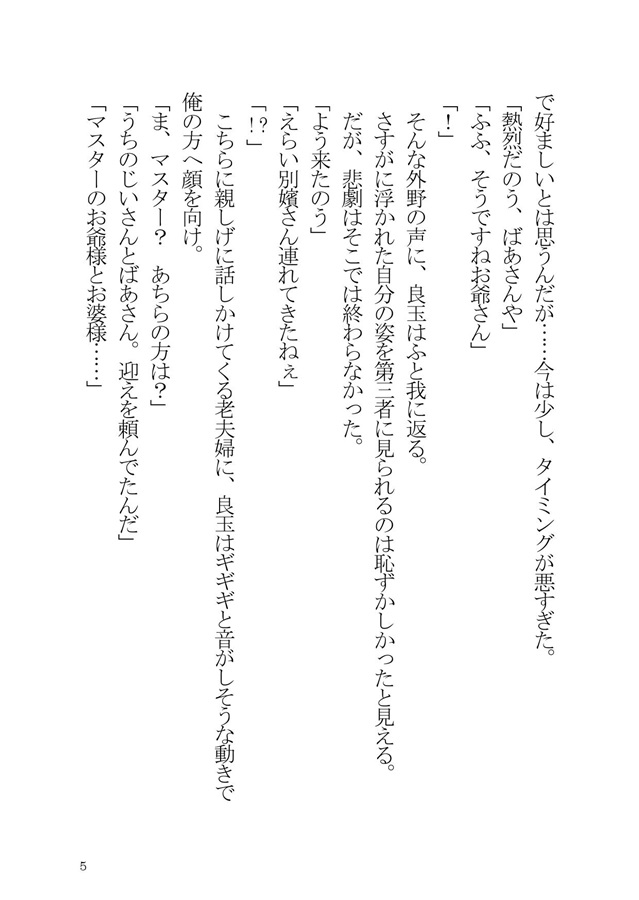 で好ましいとは思うんだが……今は少し、タイミングが悪すぎた。
「熱烈だのう、ばあさんや」
「ふふ、そうですねお爺さん」
「！」
そんな外野の声に、良玉はふと我に返る。
さすがに浮かれた自分の姿を第三者に見られるのは恥ずかしかったと見える。
だが、悲劇はそこでは終わらなかった。
「よう来たのう」
「えらい別嬪さん連れてきたねぇ」
「！？」
こちらに親しげに話しかけてくる老夫婦に、良玉はギギギと音がしそうな動きで
俺の方へ顔を向け。
「ま、マスター？　あちらの方は？」
「うちのじいさんとばあさん。迎えを頼んでたんだ」
「マスターのお爺様とお婆様……」
5